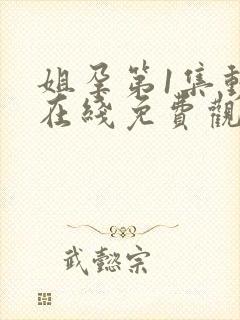 姐孕第1集動
在綫免費觀
武懿宗